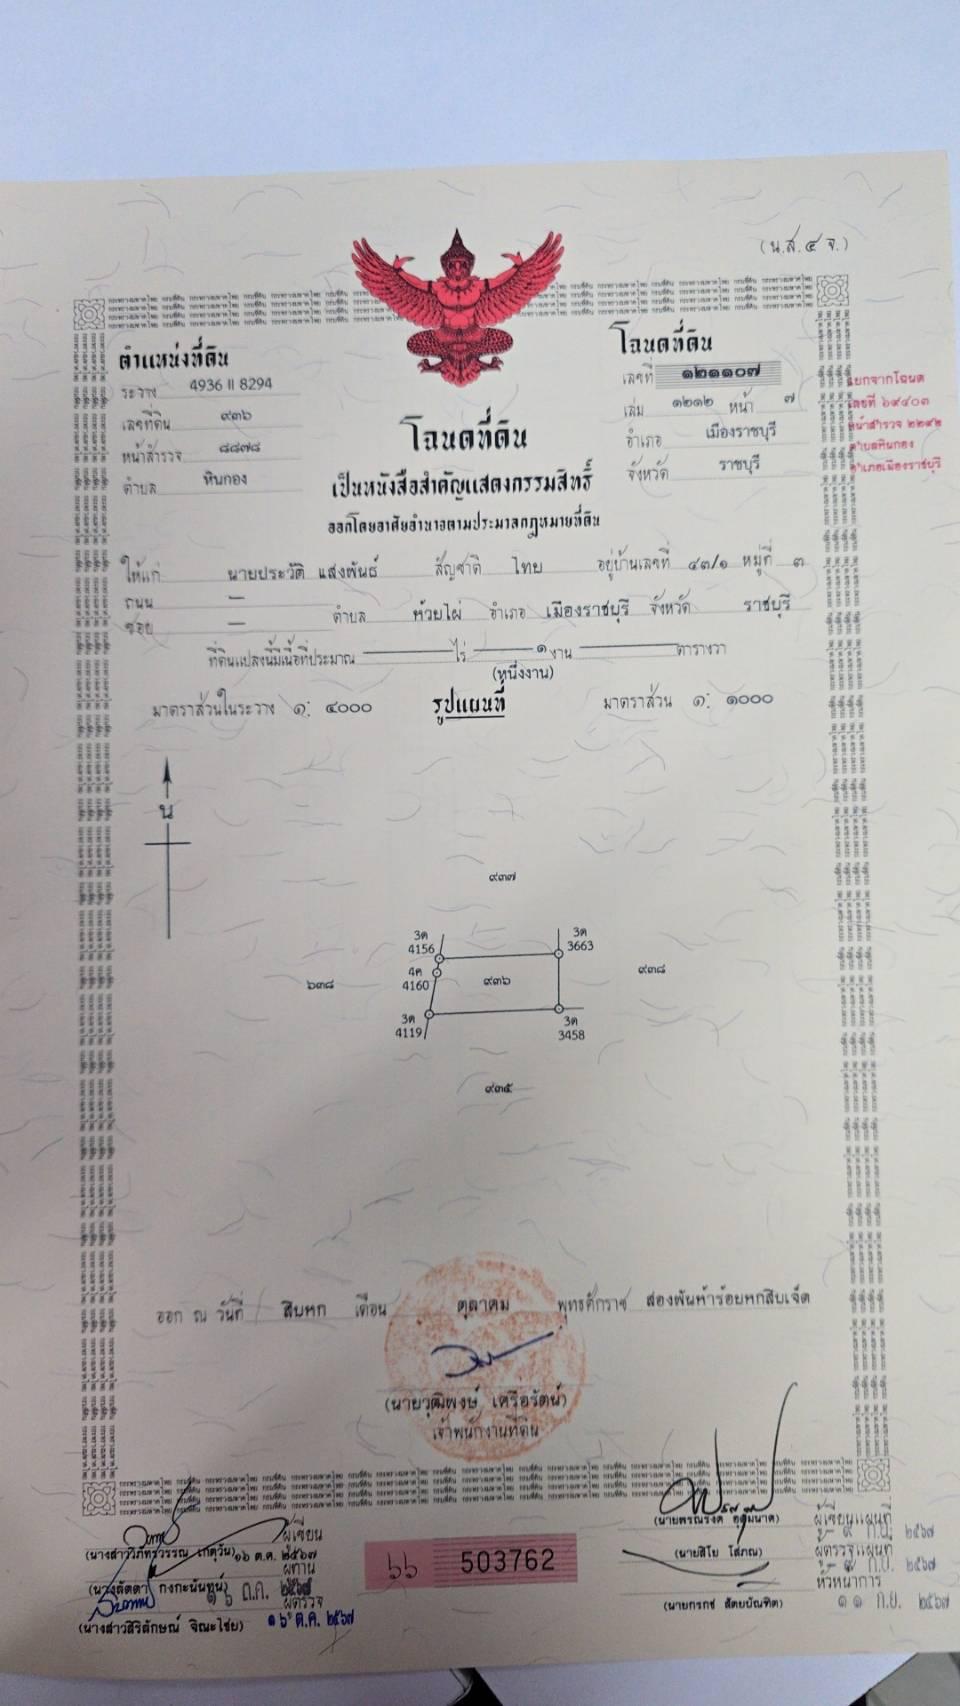 (น.ส. ๔ จ.)
ตำแหน่งที่ดิน
ระวาง 4936 II 8294
เลขที่ดิน ๙๓๖
หน้าสำรวจ ๘๘๗๘
ตำบล หินกอง
โฉนดที่ดิน
เลขที่ ๑๒๑๑๐๗
เล่ม ๑๒๑๒ หน้า ๗
อำเภอ เมืองราชบุรี
จังหวัด ราชบุรี
แยกจากโฉนด
เลขที่ ๖๙๔๐๓
หน้าสำรวจ ๒๒๙๒
ตำบลหินกอง
อำเภอเมืองราชบุรี
โฉนดที่ดิน
เป็นหนังสือสำคัญแสดงกรรมสิทธิ์
ออกโดยอาศัยอำนาจตามประมวลกฎหมายที่ดิน
ให้แก่ นายประวัติ แสงพันธ์ สัญชาติ ไทย อยู่บ้านเลขที่ ๔๓/๑ หมู่ที่ ๓
ถนน —
ซอย — ตำบล ห้วยไผ่ อำเภอ เมืองราชบุรี จังหวัด ราชบุรี
ที่ดินแปลงนี้มีเนื้อที่ประมาณ — ไร่ — ๑ งาน — ตารางวา
(หนึ่งงาน)
มาตราส่วนในระวาง ๑: ๔๐๐๐ รูปแผนที่ มาตราส่วน ๑: ๑๐๐๐
น
๙๓๗
3ค 4156
3ค 3663
4ค 4160
๙๓๖
๖๓๘
๙๓๘
3ค 4119
3ค 3458
๙๓๕
ออก ณ วันที่ สิบหก เดือน ตุลาคม พุทธศักราช สองพันห้าร้อยหกสิบเจ็ด
(นายวุฒิพงษ์ เครือรัตน์)
เจ้าพนักงานที่ดิน
ผู้เขียน
(นางสาววิภัทรวรรณ เกตุวัน) ๑๖ ต.ค. ๒๕๖๗
ผู้ทาน
(นางลัดดา กงกะนันทน์) ๑๖ ต.ค. ๒๕๖๗
ผู้ตรวจ
(นางสาวสิริลักษณ์ จิณะไชย) ๑๖ ต.ค. ๒๕๖๗
๖๖ 503762
ผู้เขียนแผนที่
๙ ก.ย. ๒๕๖๗
ผู้ตรวจแผนที่
(นายสิโย โสภณ) ๙ ก.ย. ๒๕๖๗
หัวหน้าการ
(นายกรกช สัตยบัณฑิต) ๑๑ ก.ย. ๒๕๖๗